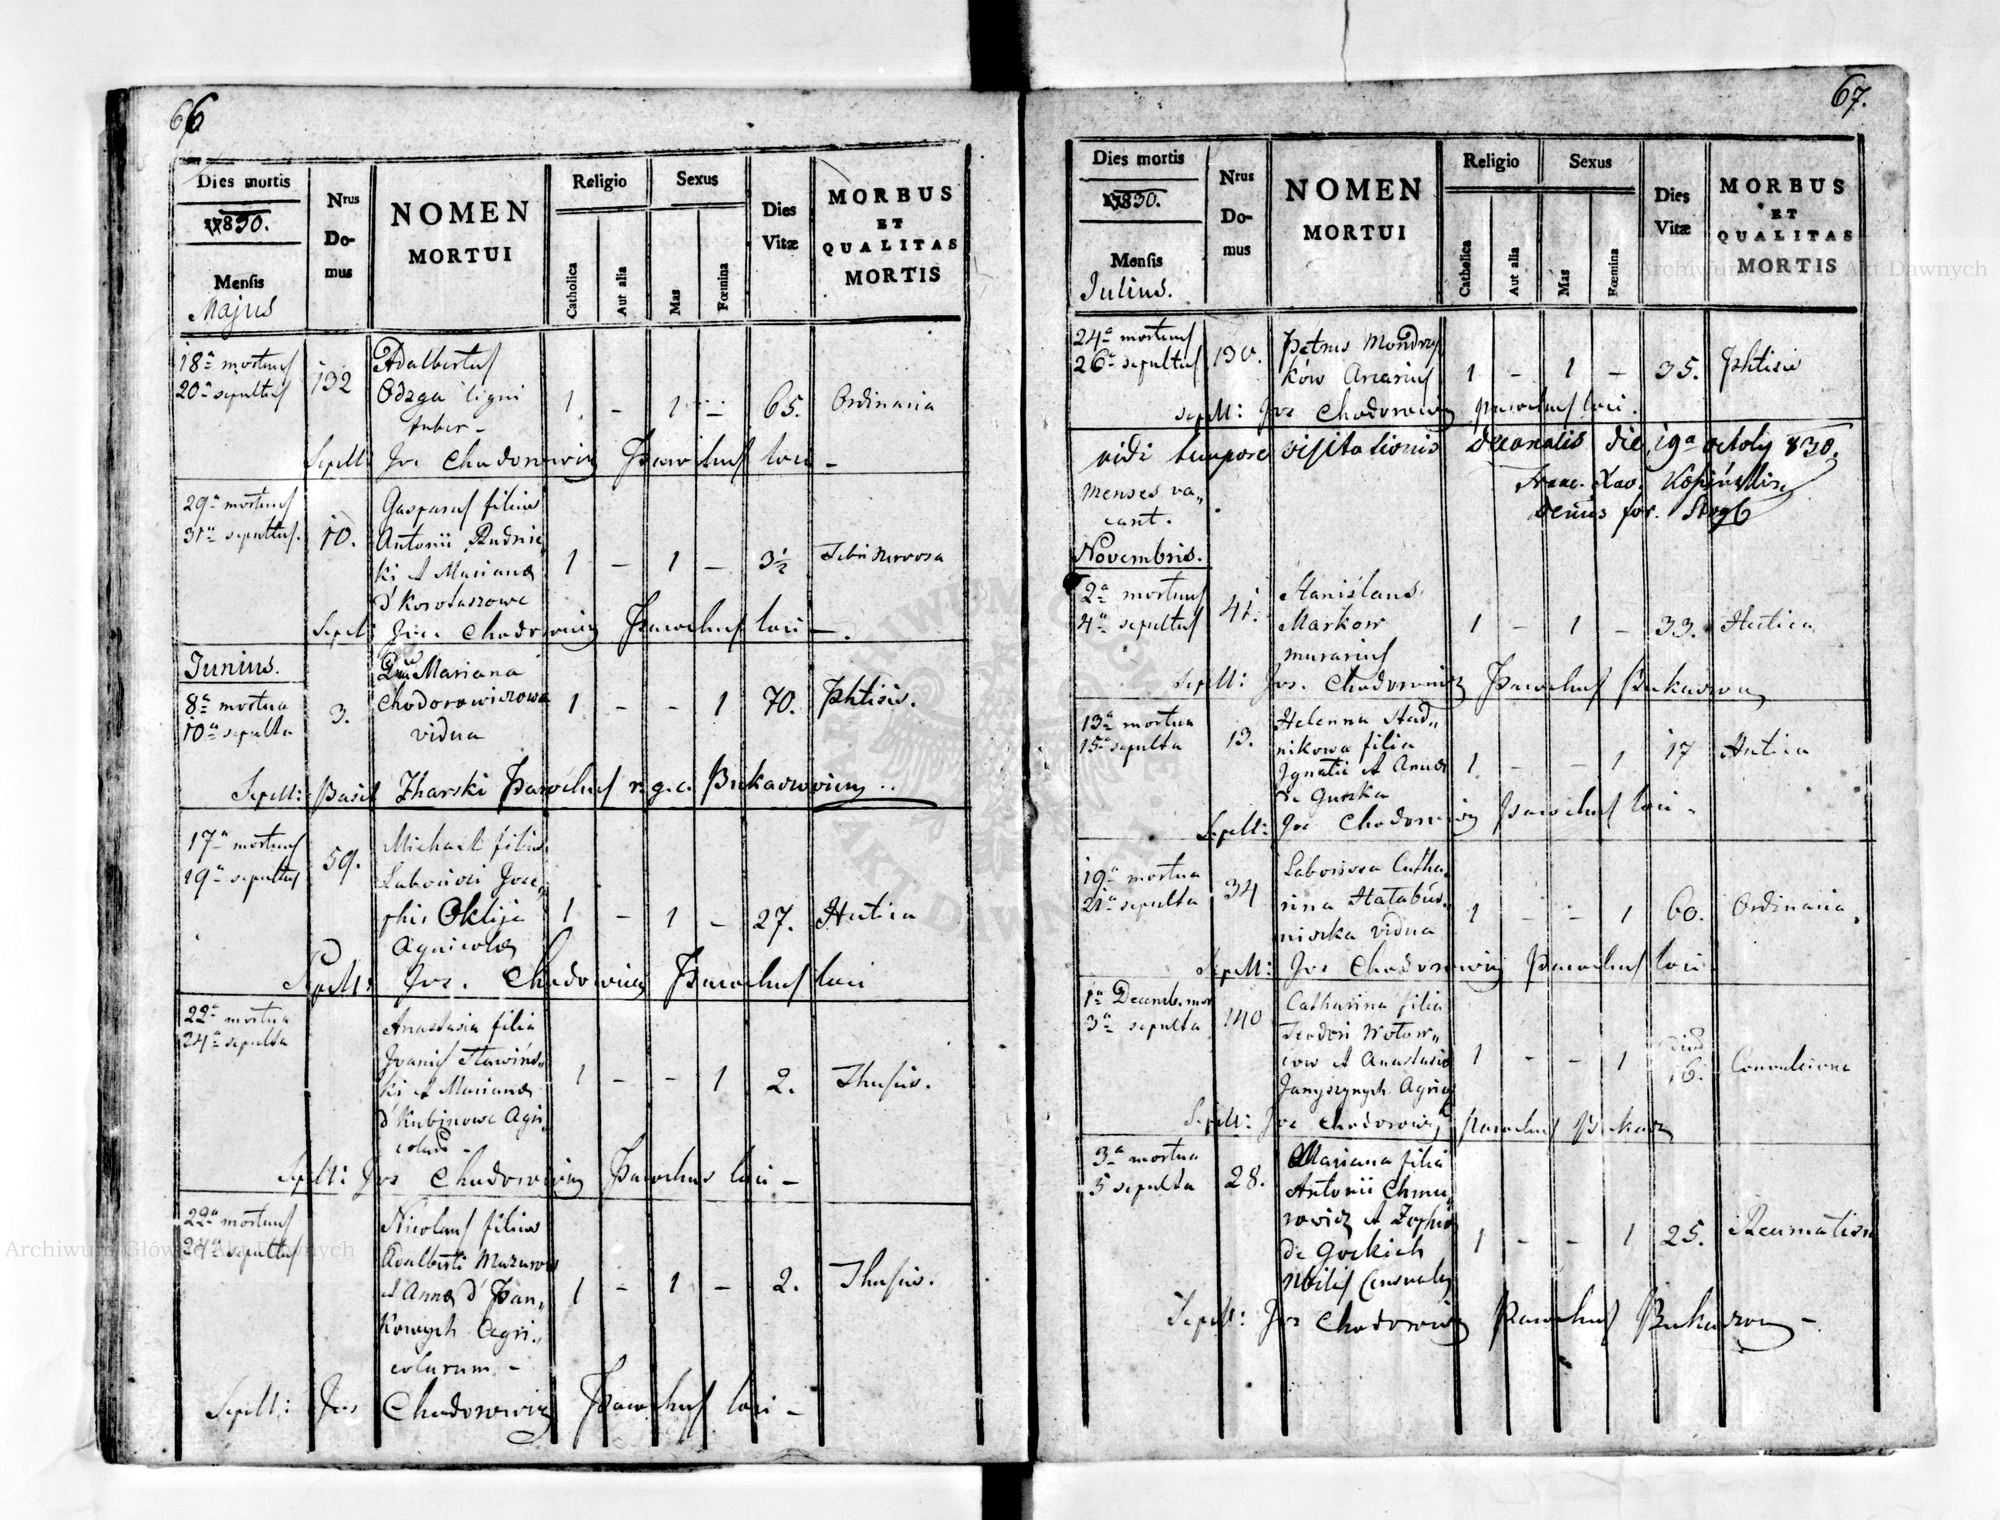 66
Dies mortis
1830.
Mensis
Majus
Nrus
Do-
mus
NOMEN
MORTUI
Religio
Catholica
Aut alia
Sexus
Mas
Fœmina
Dies
Vitæ
MORBUS
ET
QUALITAS
MORTIS
18a mortuus
20a sepultus
132
Adalbertus
Odzga ligni
1 - 1 - 65. Ordinaria
Sepell: Jos Chodorowicz Parochus loci -
29a mortuus
31a sepultus.
10.
Gasparus filius
Antonii Rudnic„
ki et Mariana
1 - 1 - 3½ Febri Nervosa
Sepell: Jos. Chodorowicz Parochus loci -.
Junius.
8a mortua
10a sepulta
3.
Mariana
Chodorowiczowa
vidua
1 - - 1 70. Phtisis.
Sepell: Basil Zharski Parochus r.g.c. Bukaczovien
17a mortuus
19a sepultus
59.
Michael filius
Jose„
phi Oklija
Agricola
1 - 1 - 27. Hectica
Sepell: Jos. Chodorowicz Parochus loci
22a mortua
24a sepulta
Anastasia filia
Joanis Stawińs„
ki et Mariana
d'Kubinowe Agri„
1 - - 1 2. Thussis.
Sepell: Jos Chodorowicz Parochus loci -
22a mortuus
24a sepultus
Nicolaus filius
Adalberti Mazurow
et Anna d' Pan„
Kowych Agri„
colarum -
1 - 1 - 2. Thussis.
Sepell: Jos Chodorowicz Parochus loci -
67.
Dies mortis
1830.
Mensis
Julius.
Nrus
Do-
mus
NOMEN
MORTUI
Religio
Catholica
Aut alia
Sexus
Mas
Fœmina
Dies
Vitæ
MORBUS
ET
QUALITAS
MORTIS
24a mortuus
26a sepultus
130.
Petrus Mondry„
ków
1 - 1 - 35. Phtisis
Sepell: Jos Chodorowicz parochus loci.
vidi tempore visitationis decanalis die 19a octobr 830.
Franc. Xav.
Menses va„
cant.
Novembris.
2a mortuus
4a sepultus
41.
Stanislaus
Markow
murarius
1 - 1 - 33. Hectica
Sepell: Jos. Chodorowicz Parochus Bukaczow
13a mortua
15a sepulta
13.
Helenna Stad„
nikowa filia
Ignatii et Anna
de Guzka
1 - - 1 17 Hectica
Sepell: Jos Chodorowicz Parochus loci -
19a mortua
21a sepulta
34
Catha„
rina
vidua
1 - - 1 60. Ordinaria.
Sepell: Jos Chodorowicz Parochus loci
1a Decemb. mor
3a sepulta
140
Catharina filia
Teodori Wotow„
cow et Anastasia
Janyszynych Agric
1 - - 1 16. Convulsiona
Sepell: Jos Chodorowicz Parochus Bukacz
3a mortua
5 sepulta
28.
Mariana filia
Antonii Chmu„
rowicz et Zophia
de Gockich
Nobilis
1 - - 1 25. Reumatism
Sepell: Jos Chodorowicz Parochus Bukaczow -.
Archiwum Główne Akt Dawnych
Archiwum Główne Akt Dawnych
ARCHIWUM GŁÓWNE AKT DAWNYCH